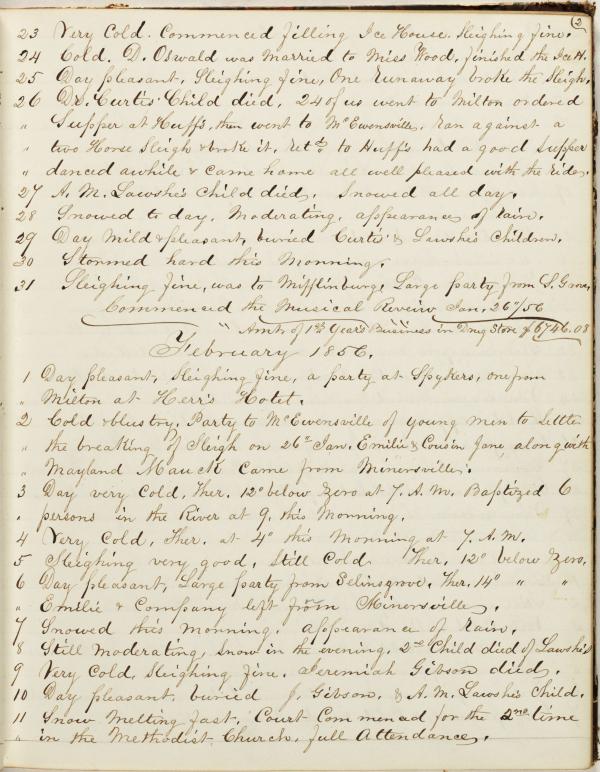 (2
23 Very Cold. Commenced filling Ice House. Sleighing fine.
24 Cold. D. Oswald was Married to Miss Wood. finished the Ice H.
25 Day pleasant, Sleighing fine, One runaway broke the Sleigh.
26 Dr. Curtis' Child died. 24 of us went to Milton ordered
" Supper at Huff's, then went to McEwensville. ran against a
" two Horse Sleigh & broke it. Retd. to Huff's had a good Supper
" danced awhile & came home all well pleased with the ride.
27 A. M. Lawshe's Child died. Snowed all day.
28 Snowed to day. Moderating, appearance of rain.
29 Day Mild & pleasant, buried Curtis' & Lawshe's Children.
30 Stormed hard this Morning.
31 Sleighing fine, was to Mifflinburg, Large party from S. Grove,
Commenced the Musical Reveiw Jan. 26"/56
" Amt. of 1st Year's Business in Drug Store $6746.08
February 1856.
1 Day pleasant, Sleighing fine, a party at Spykers, one from
" Milton at Herr's Hotel.
2 Cold & blustry. Party to McEwensville of young men to Settle
" the breaking of Sleigh on 26th Jan. Emilie & Cousin Jane along with
" Mayland Mauck came from Minersville.
3 Day very Cold, Ther. 12° below Zero at 7. A. M. Baptized 6
" persons in the River at 9. this Morning.
4 Very Cold, Ther. at 4° this Morning at 7 A. M.
5 Sleighing very good, Still Cold Ther. 12° below Zero.
6 Day pleasant, Large party from Selinsgrove. Ther. 14° " "
" Emilie & Company left for Minersville.
7 Snowed this morning. appearance of rain.
8 Still moderating, snow in the evening. 2nd Child died of Lawshe's
9 Very Cold, Sleighing fine. Jeremiah Gibson died.
10 Day pleasant, buried J. Gibson. & A. M. Lawshe's Child.
11 Snow melting fast. Court Commenced for the 2nd time
" in the Methodist Church. full Attendance.